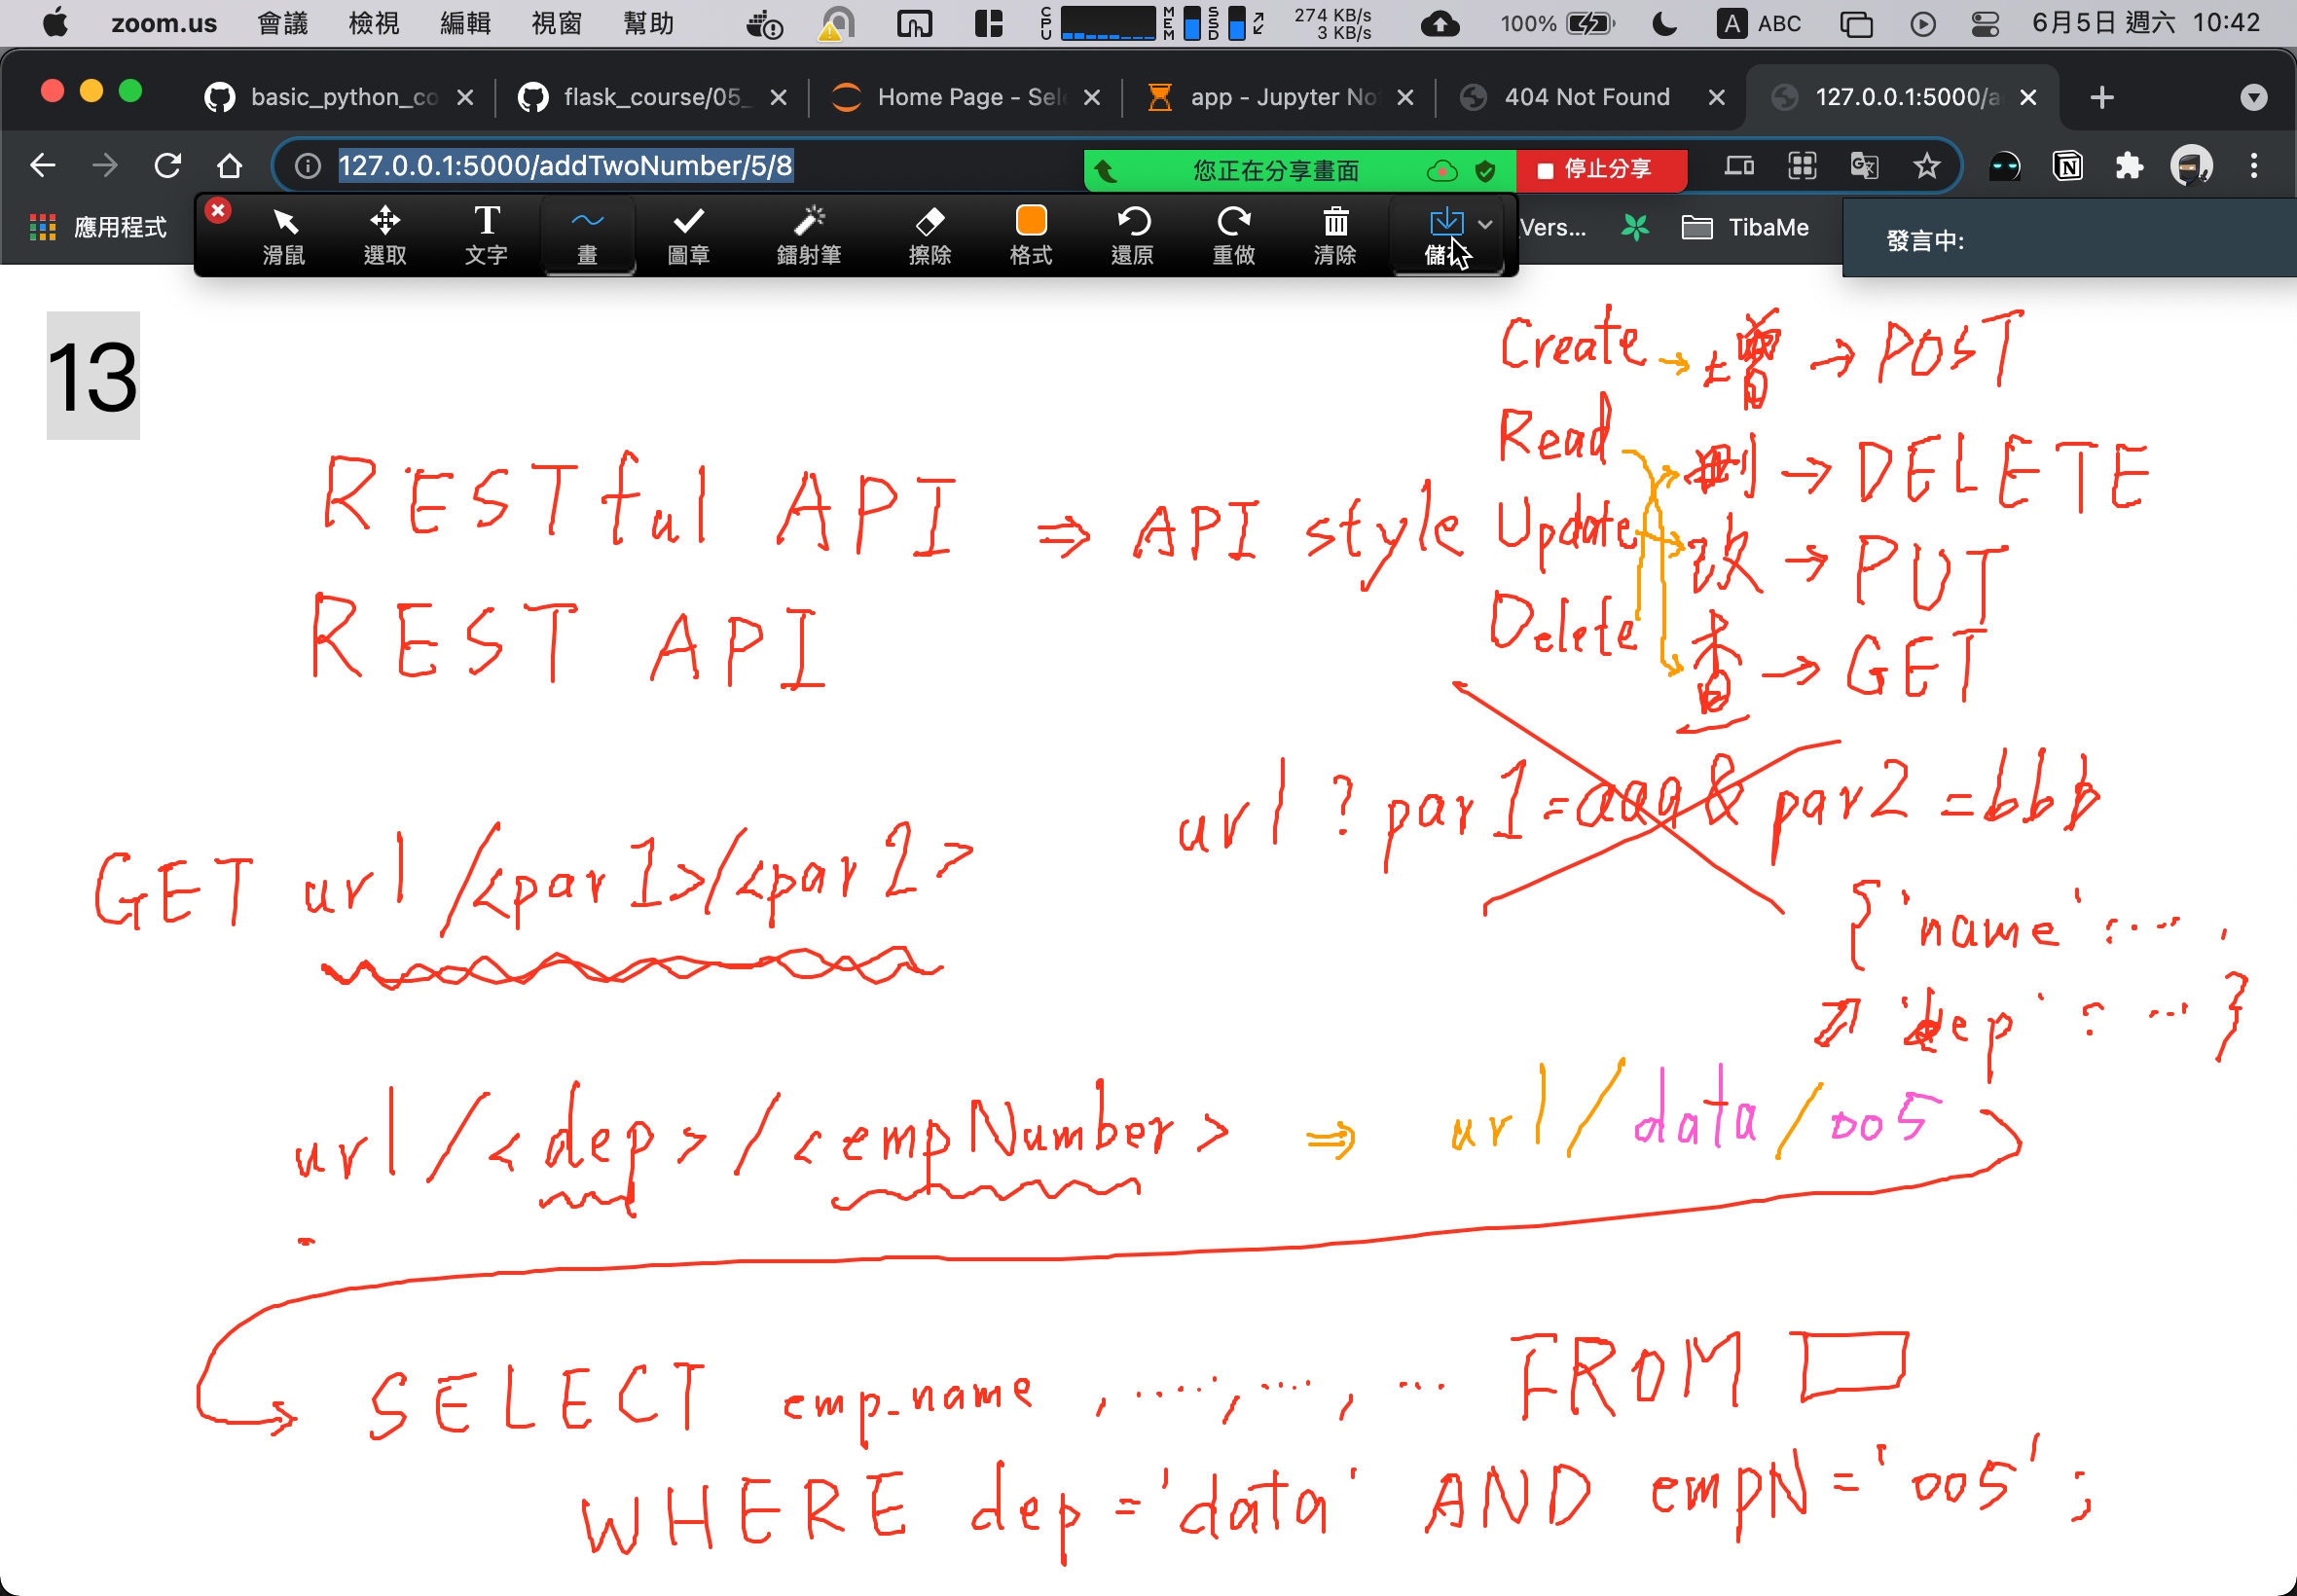 zoom.us 會議 檢視 編輯 視窗 幫助 CPU MEM SSD 274 KB/s 3 KB/s 100% A ABC 6月5日 週六 10:42
basic_python_co flask_course/05_ Home Page - Sele app - Jupyter No 404 Not Found 127.0.0.1:5000/a
127.0.0.1:5000/addTwoNumber/5/8 您正在分享畫面 停止分享
應用程式 滑鼠 選取 文字 畫 圖章 鐳射筆 擦除 格式 還原 重做 清除 儲存 Vers... TibaMe 發言中:
13
Create → 增 → POST
Read 刪 → DELETE
RESTful API ⇒ API style Update 改 → PUT
REST API Delete 查 → GET
url ? par1=aaa&par2=bbb
GET url/<par1>/<par2>
{'name': ... ,
'dep': ... }
url/<dep>/<empNumber> ⇒ url/data/005
→ SELECT emp_name , ...., ..., ... FROM
WHERE dep='data' AND empN='005';